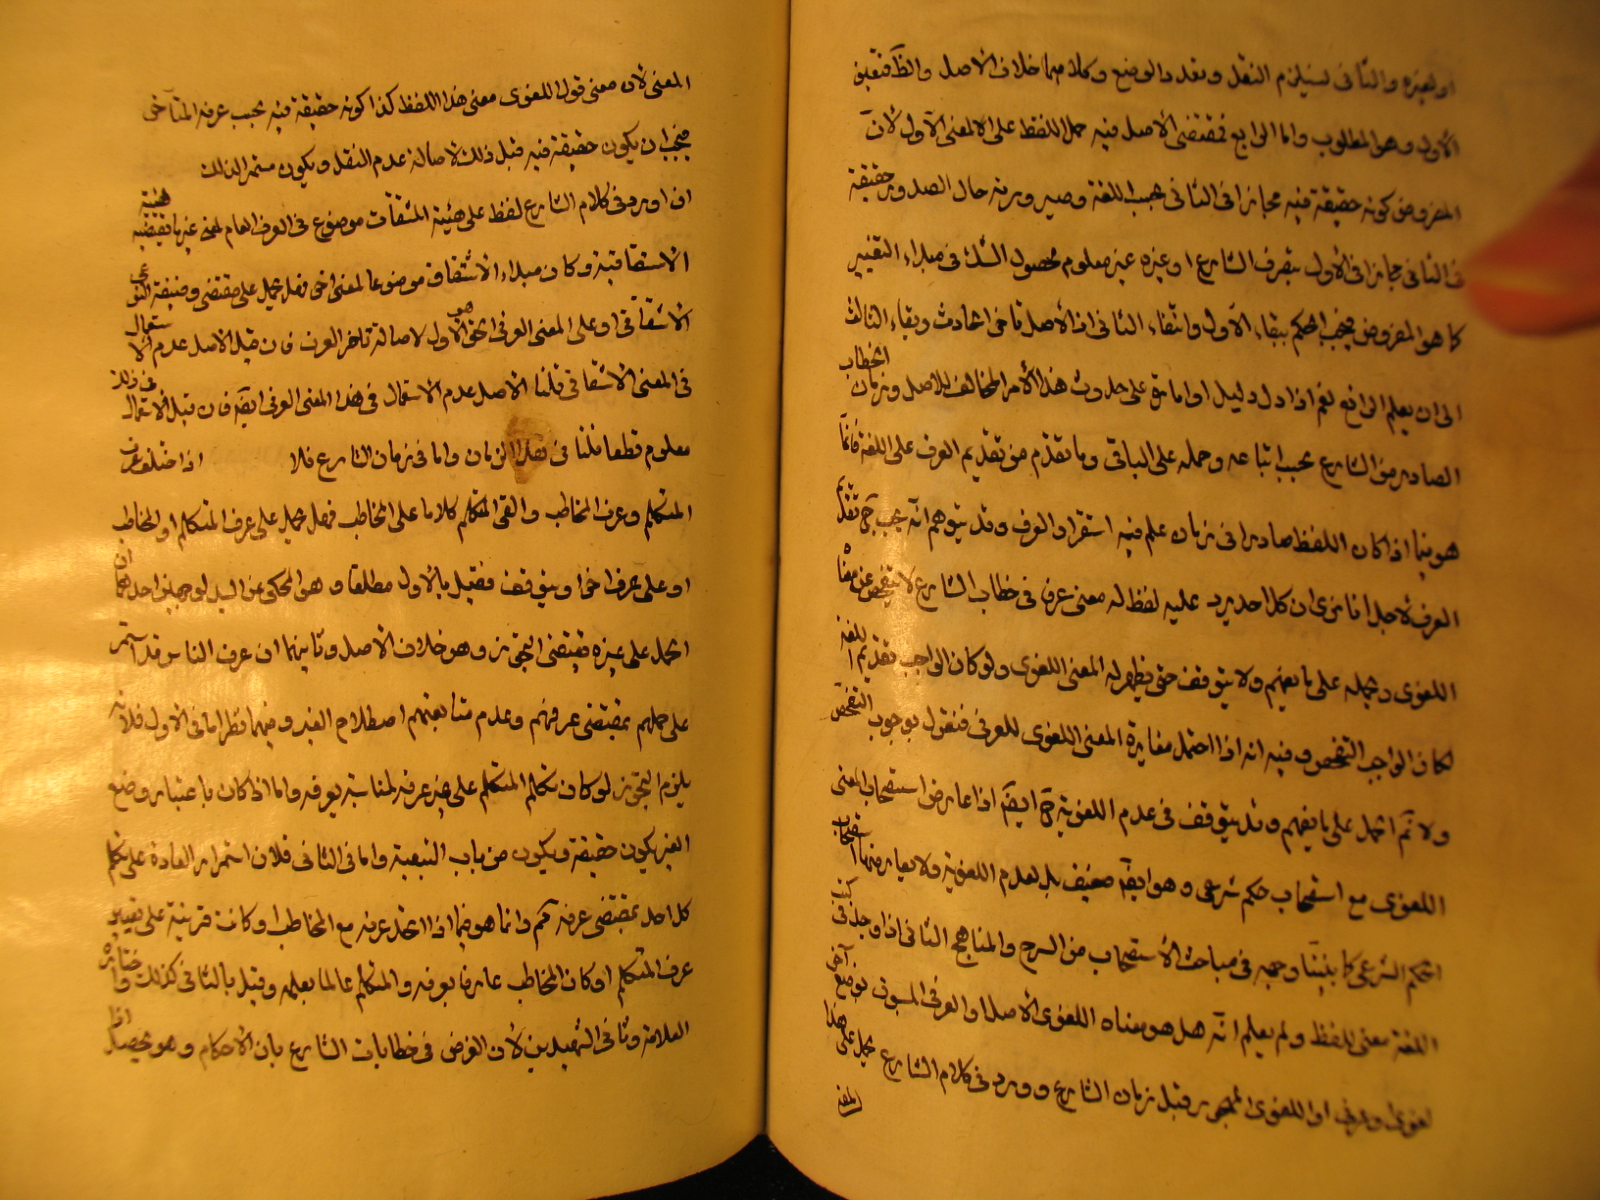 او لغيره والثاني يستلزم النقل وتعدد الوضع وكلاهما خلاف الاصل والظ فتعين
الاول وهو المطلوب واما الرابع فمقتضى الاصل فيه حمل اللفظ على المعنى الاول لان
المفروض كونه حقيقة فيه مجازا في الثاني بحسب اللغة وصيرورته حال الصدور حقيقة
في الثاني مجازا في الاول بتصرف الشارع او غيره غير معلوم لحصول الشك في مبداء التغيير
كما هو المفروض فيجب الحكم ببقاء الاول وانتفاء الثاني اذ الاصل تاخر الحادث وبقاء الثالث
الى ان يعلم الرافع نعم اذا دل دليل او امارة على حدوث هذا الامر المخالف للاصل وزمان الخطاب
الصادر من الشارع يجب اتباعه وحمله على الباقي وما تقدم من تقديم العرف على اللغة فانما
هو فيما اذا كان اللفظ صادرا في زمان علم فيه استقرار العرف وقد يتوهم انه يجب ح تقديم
العرف لاجل انا نرى ان كل احد يرد عليه لفظ له معنى عرفي في خطاب الشارع لا يتفحص عن معناه
اللغوي ويحمله على ما يفهم ولا يتوقف حتى يظهر له المعنى اللغوي ولو كان الواجب تقديم اللغة
لكان الواجب التفحص وفيه انه اذا احتمل مغايرة المعنى اللغوي للعرفي فنقول بوجوب التفحص
ولا تم الحمل على ما يفهم وقد يتوقف في عدم اللغوية ح ايضا اذا عارض استصحاب المعنى
اللغوي مع استصحاب حكم شرعي وهو ايضا ضعيف بل بعدم اللغوية ولا يعارضها استصحاب
الحكم الشرعي كما بينا وجهه في مباحث الاستصحاب من الشرح والمناهج الثاني اذا وجد في كتب
اللغة معنى للفظ ولم يعلم انه هل هو معناه اللغوي الاصلي او العرفي المسبوق بوضع آخر
لغوي او عرفي او اللغوي المهجور قبل زمان الشارع وورد في كلام الشارع يحمل على هذا
المعنى
المعنى لان معنى قول اللغوي معنى هذا اللفظ كذا كونه حقيقة فيه بحسب عرفه المتاخر
فيجب ان يكون حقيقة فيه قبل ذلك لاصالة عدم النقل ويكون مستمرا لذلك
اذا ورد في كلام الشارع لفظ على هيئة المشتقات موضوع في العرف العام لمعنى غير ما تقتضيه هيئته
الاشتقاقية وكان مبداء الاشتقاق موضوعا لمعنى اخر فهل يحمل على مقتضى وضعيه النوعي
الاشتقاقي او على المعنى العرفي الحق هو الاول لاصالة تاخر العرف فان قيل الاصل عدم الاستعمال
في المعنى الاشتقاقي قلنا الاصل عدم الاستعمال في هذا المعنى العرفي ايضا فان قيل الاستعمال في ذلك
معلوم قطعا قلنا في هذا الزمان واما في زمان الشارع فلا اذا اختلف عرف
المتكلم وعرف المخاطب والقى المتكلم كلاما على المخاطب فهل يحمل على عرف المتكلم او المخاطب
او على عرف اخر او يتوقف فقيل بالاول مطلقا وهو المحكي عن السيد لوجهين احدهما ان
الحمل على غيره يقتضي التجوز وهو خلاف الاصل وثانيهما ان عرف الناس قد استمر
على حملهم بمقتضى عرفهم وعدم متابعتهم اصطلاح الغير وفيهما نظر اما في الاول فلانه
يلزم التجوز لو كان تكلم المتكلم على غير عرفه لمناسبة يعرفه واما اذا كان باعتبار وضع
الغير يكون حقيقة ويكون من باب التبعية واما في الثاني فلان استمرار العادة على تكلم
كل احد بمقتضى عرفه مم وانما هو فيما اذا اتحد عرفه مع المخاطب او كانت قرينة على تعيين
عرف المتكلم او كان المخاطب عارفا بعرفه والمتكلم عالما بعلمه وقيل بالثاني كذلك واختاره
العلامة وثاني الشهيدين لان الغرض في خطابات الشارع بيان الاحكام وهو يحصل اذا